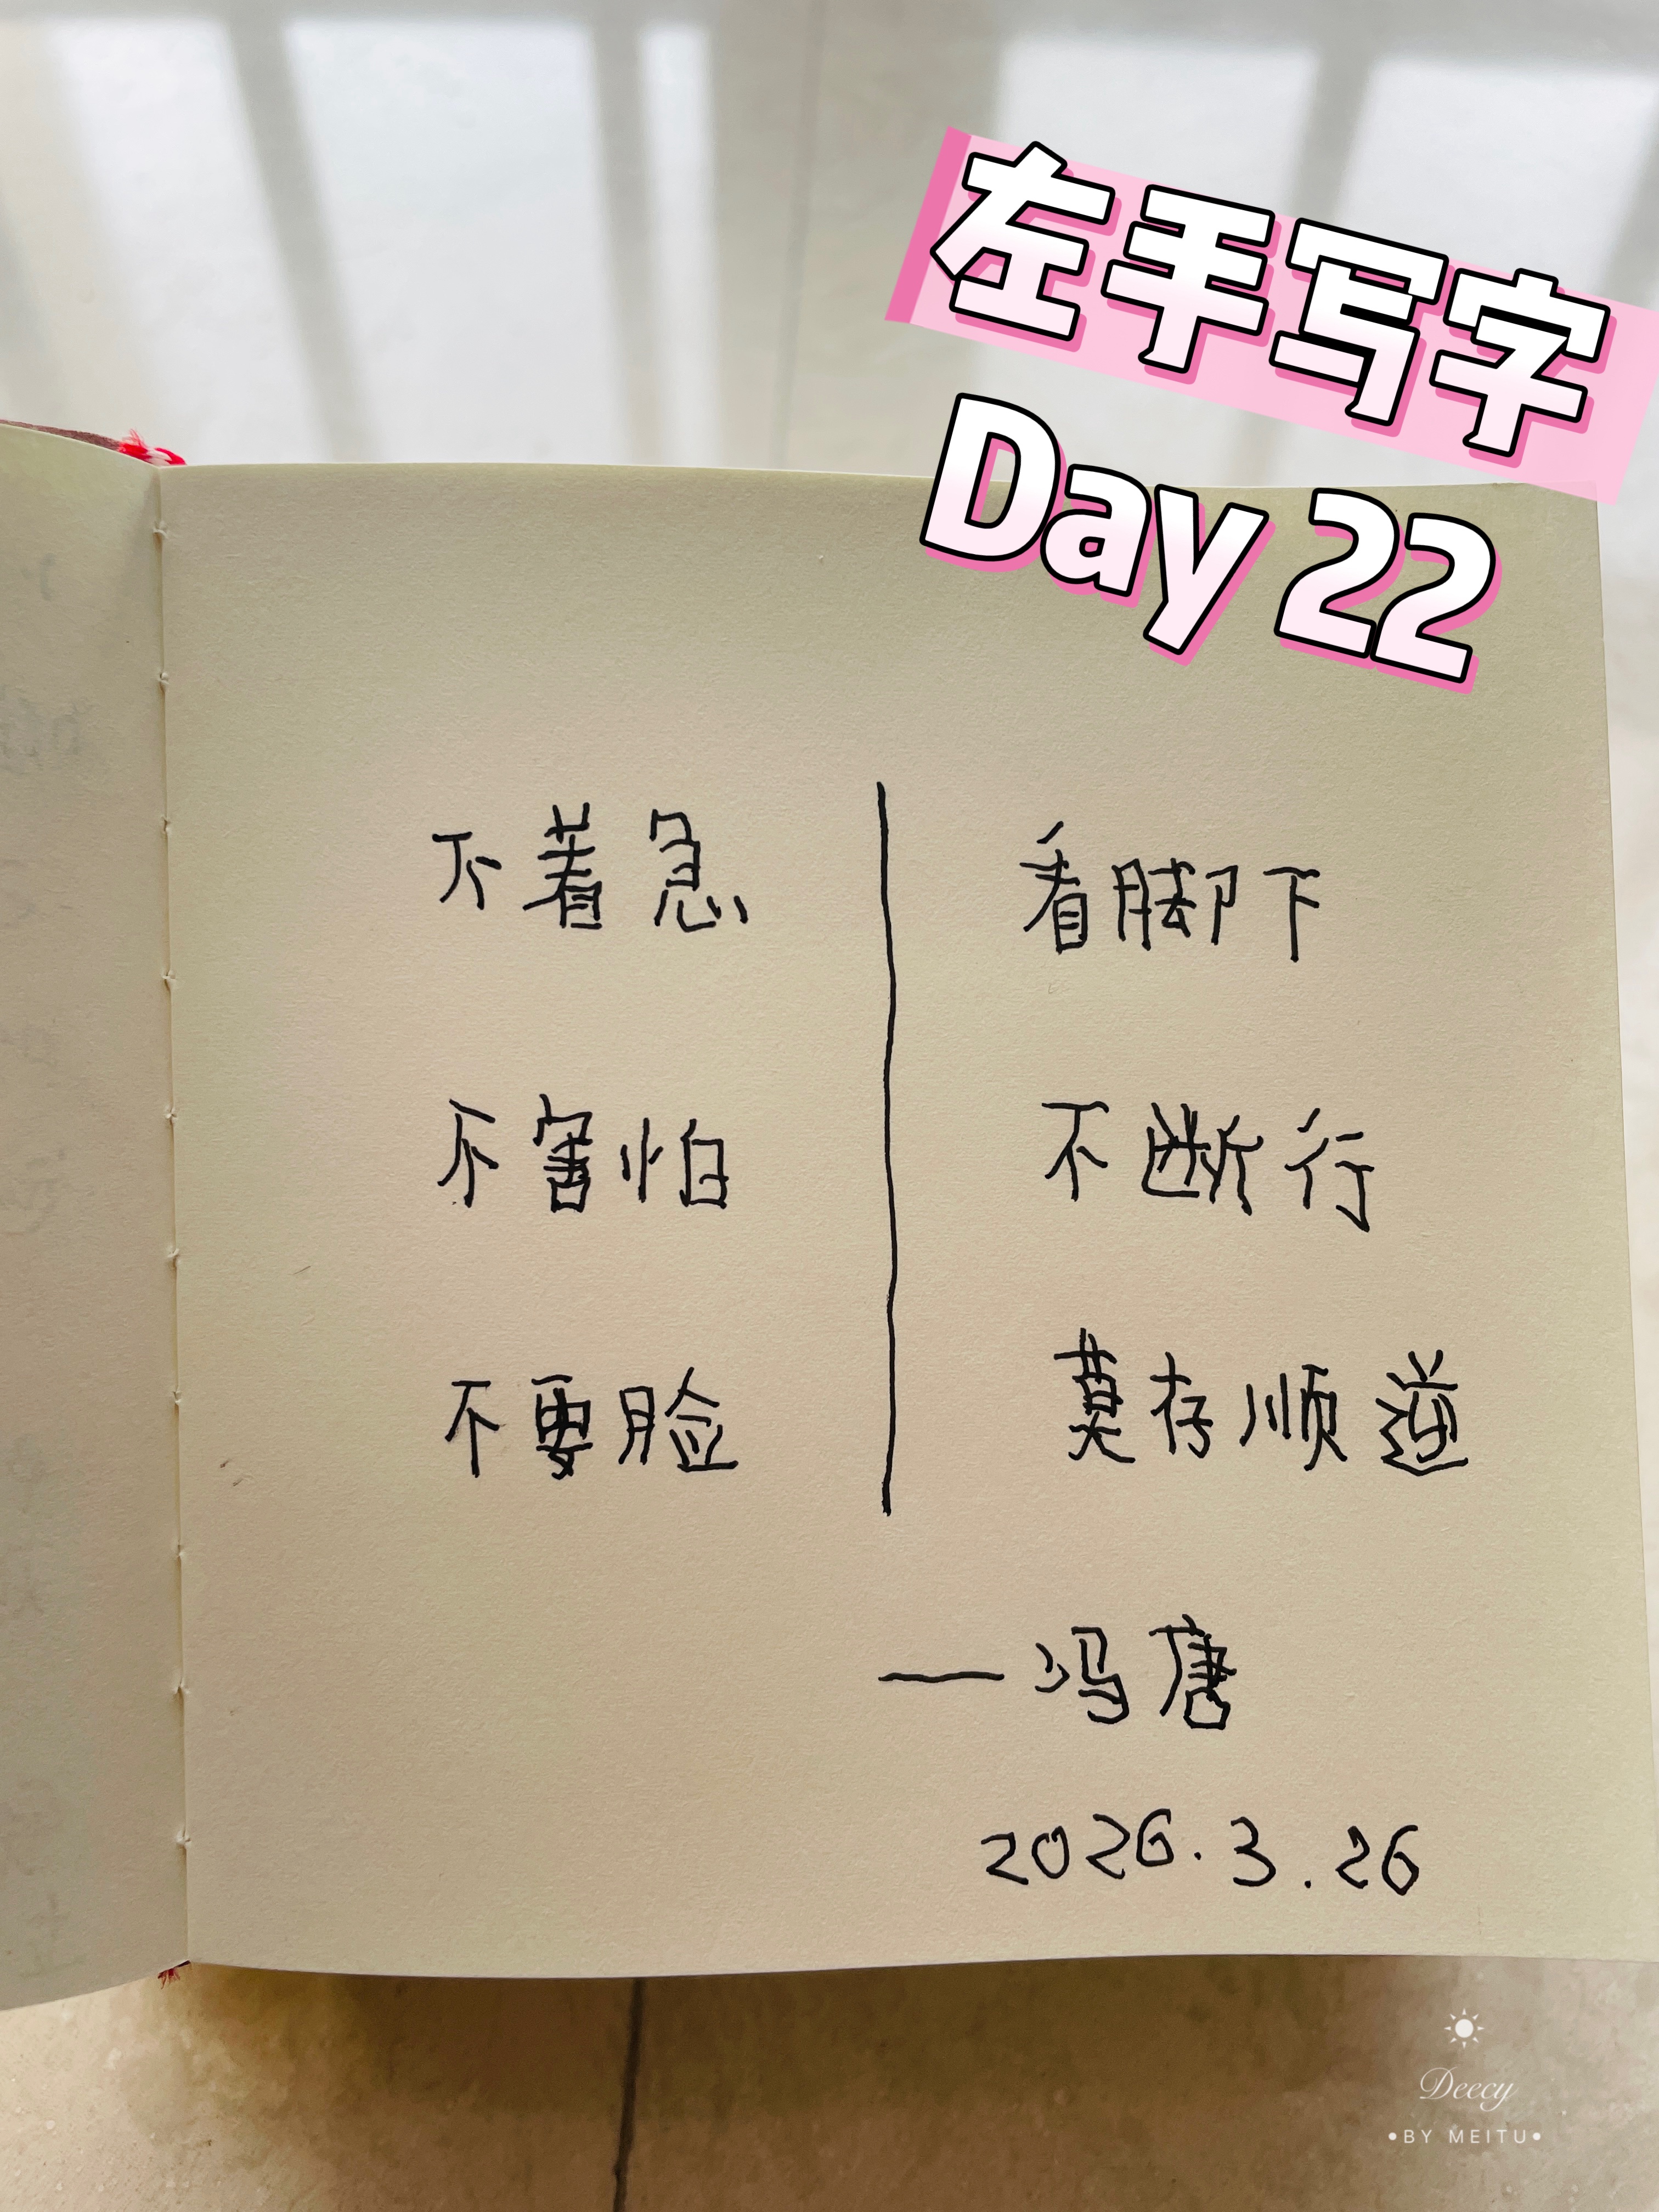 左手写字
Day 22
不着急
不害怕
不要脸
看脚下
不断行
莫存顺逆
—冯唐
2026.3.26
Deecy
•BY MEITU•